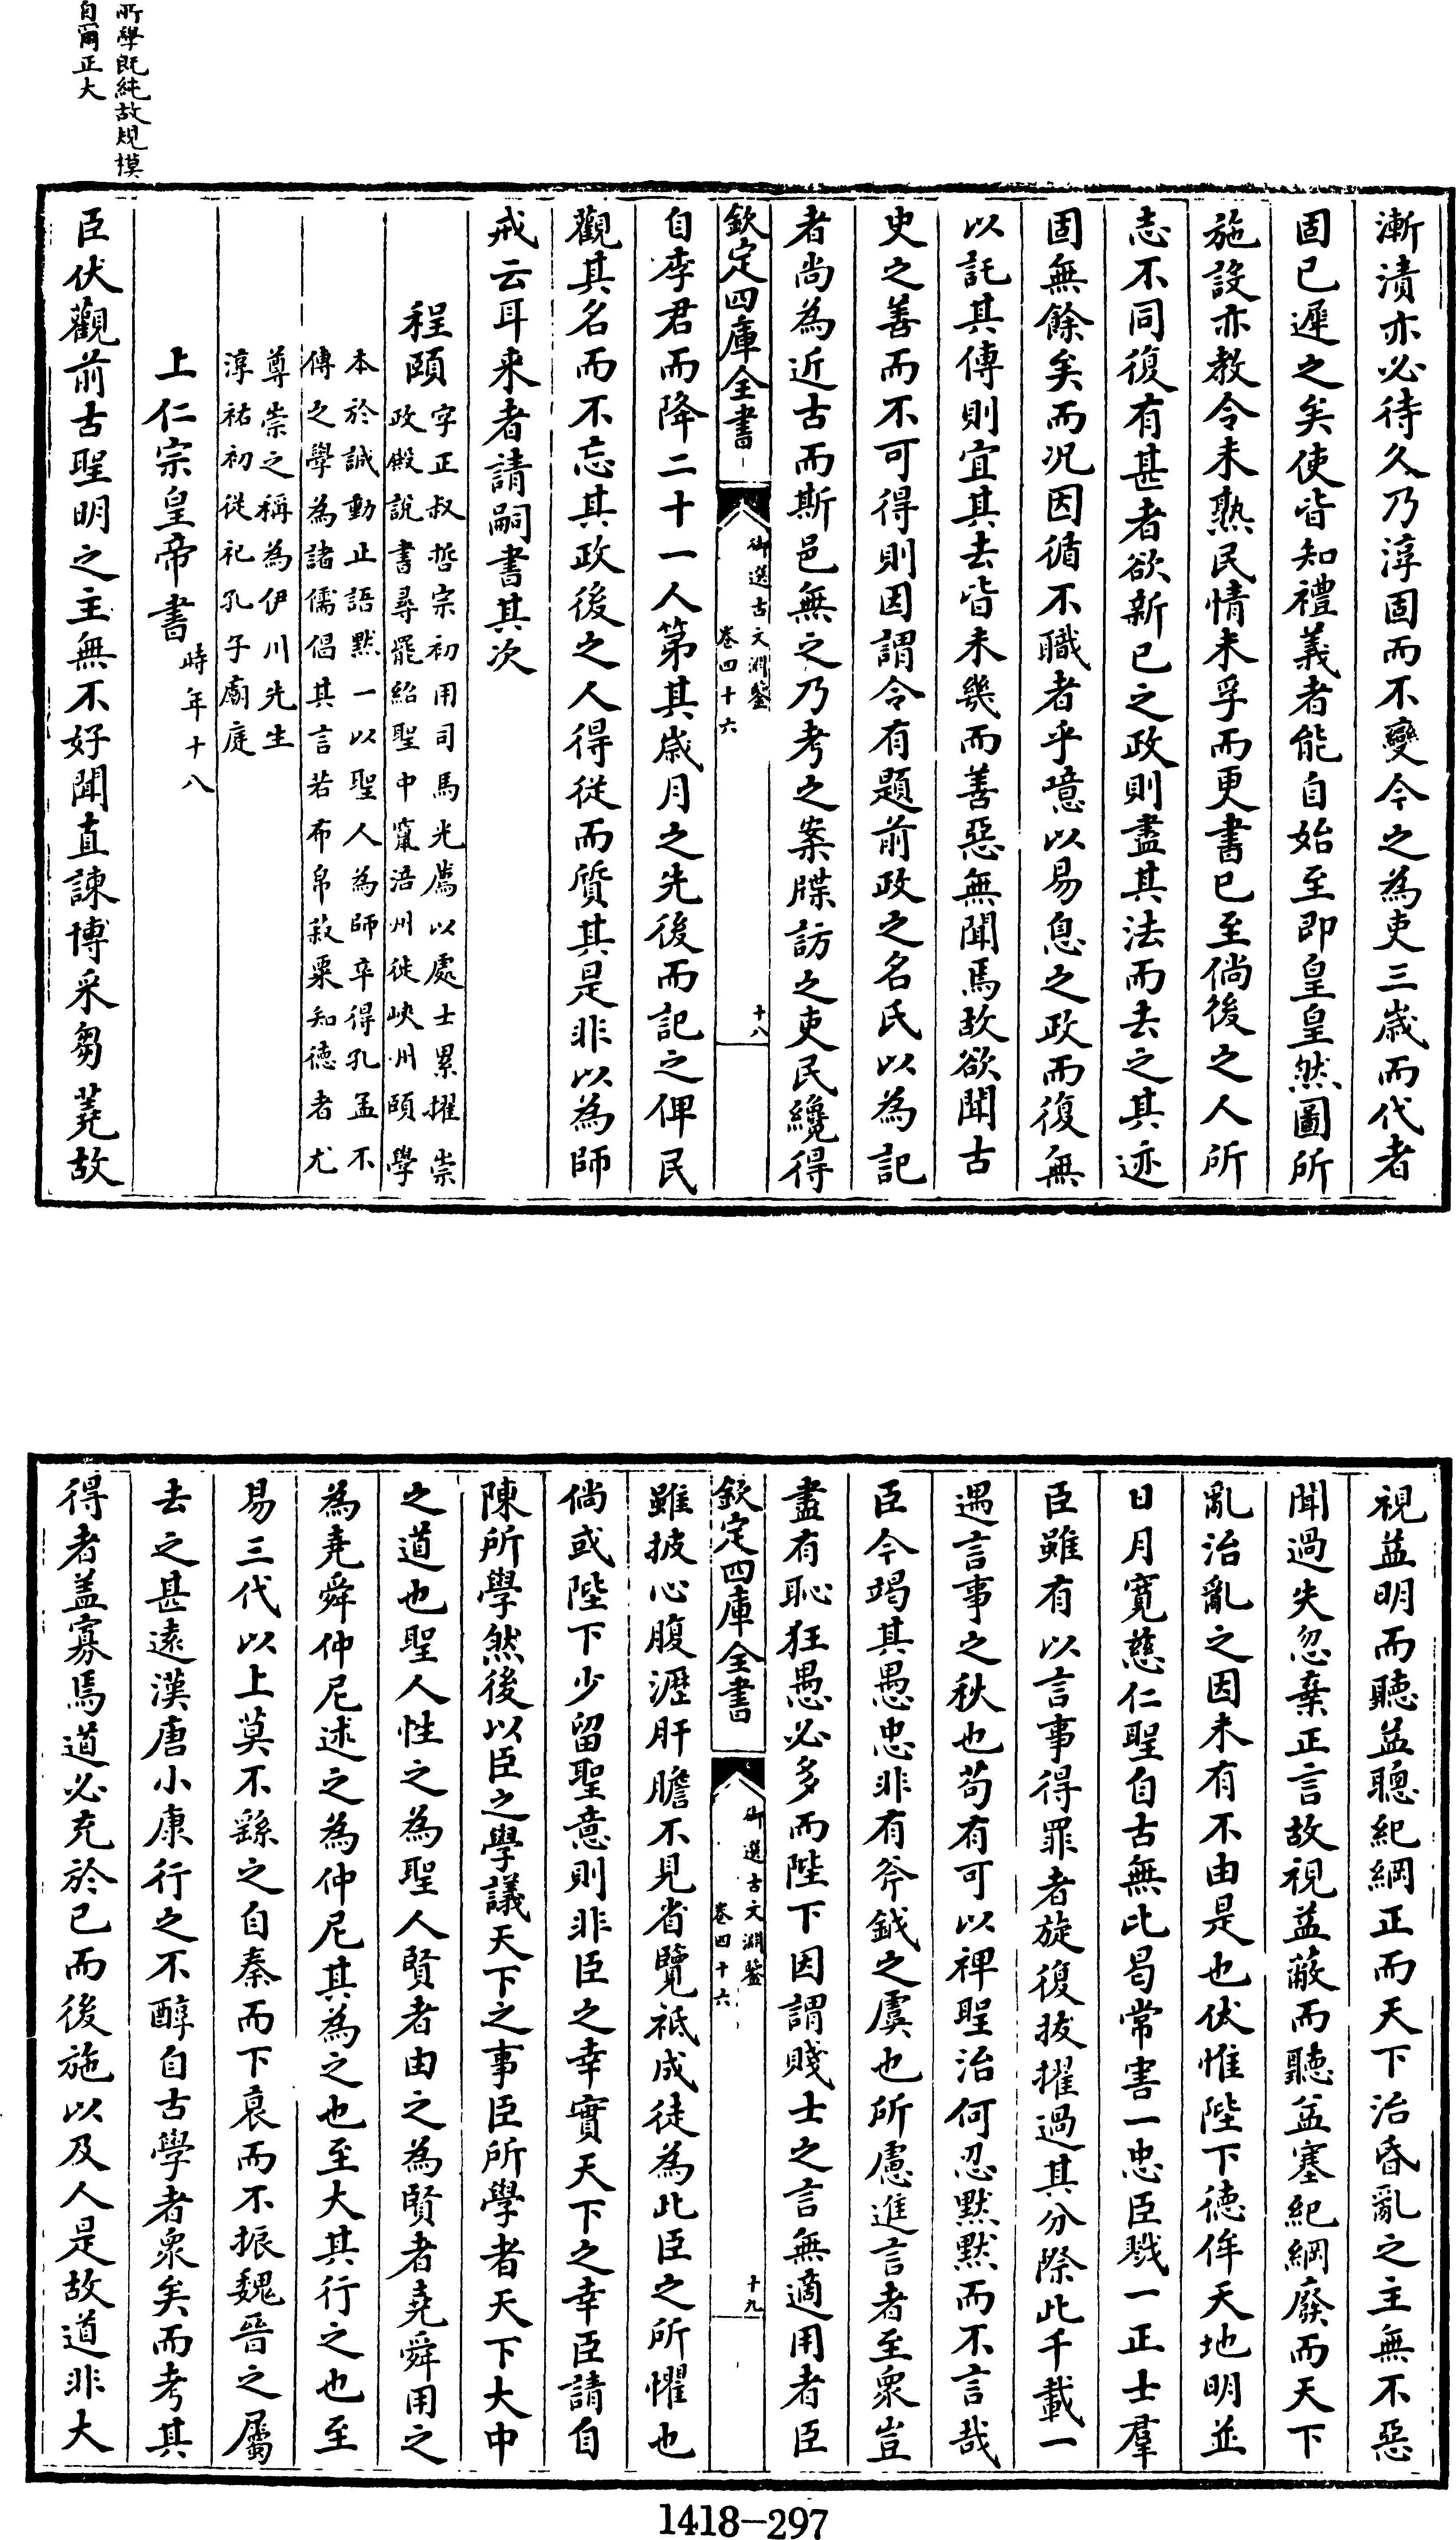 所學旣純故規模
自爾正大
漸漬亦必待久乃淳固而不變今之為吏三歲而代者
固已遲之矣使皆知禮義者能自始至即皇皇然圖所
施設亦教令未熟民情未孚而更書已至倘後之人所
志不同復有甚者欲新已之政則盡其法而去之其迹
固無餘矣而况因循不職者乎噫以易息之政而復無
以託其傳則宜其去皆未幾而善惡無聞焉故欲聞古
史之善而不可得則因謂令有題前政之名氏以為記
者尚為近古而斯邑無之乃考之案牒訪之吏民纔得
欽定四庫全書
御選古文淵鑒
卷四十六
十八
自李君而降二十一人第其歲月之先後而記之俾民
觀其名而不忘其政後之人得從而質其是非以為師
戒云耳来者請嗣書其次
程頤
字正叔哲宗初用司馬光薦以處士累擢崇
政殿説書尋罷紹聖中竄涪州徙峽州頤學
本於誠動止語默一以聖人為師卒得孔孟不
傳之學為諸儒倡其言若布帛菽粟知德者尤
尊崇之稱為伊川先生
淳祐初從祀孔子廟庭
上仁宗皇帝書
時年十八
臣伏觀前古聖明之主無不好聞直諫博采芻蕘故
視益明而聽益聰紀綱正而天下治昏亂之主無不惡
聞過失忽棄正言故視益蔽而聽益塞紀綱廢而天下
亂治亂之因未有不由是也伏惟陛下德侔天地明並
日月寛慈仁聖自古無比曷常害一忠臣戮一正士羣
臣雖有以言事得罪者旋復拔擢過其分際此千載一
遇言事之秋也苟有可以裨聖治何忍默默而不言哉
臣今竭其愚忠非有斧鉞之虞也所慮進言者至衆豈
盡有恥狂愚必多而陛下因謂賤士之言無適用者臣
欽定四庫全書
御選古文淵鑒
卷四十六
十九
雖披心腹瀝肝膽不見省覽祗成徒為此臣之所懼也
倘或陛下少留聖意則非臣之幸實天下之幸臣請自
陳所學然後以臣之學議天下之事臣所學者天下大中
之道也聖人性之為聖人賢者由之為賢者堯舜用之
為堯舜仲尼述之為仲尼其為之也至大其行之也至
易三代以上莫不繇之自秦而下衰而不振魏晉之屬
去之甚遠漢唐小康行之不醇自古學者衆矣而考其
得者盖寡焉道必充於己而後施以及人是故道非大
1418-297